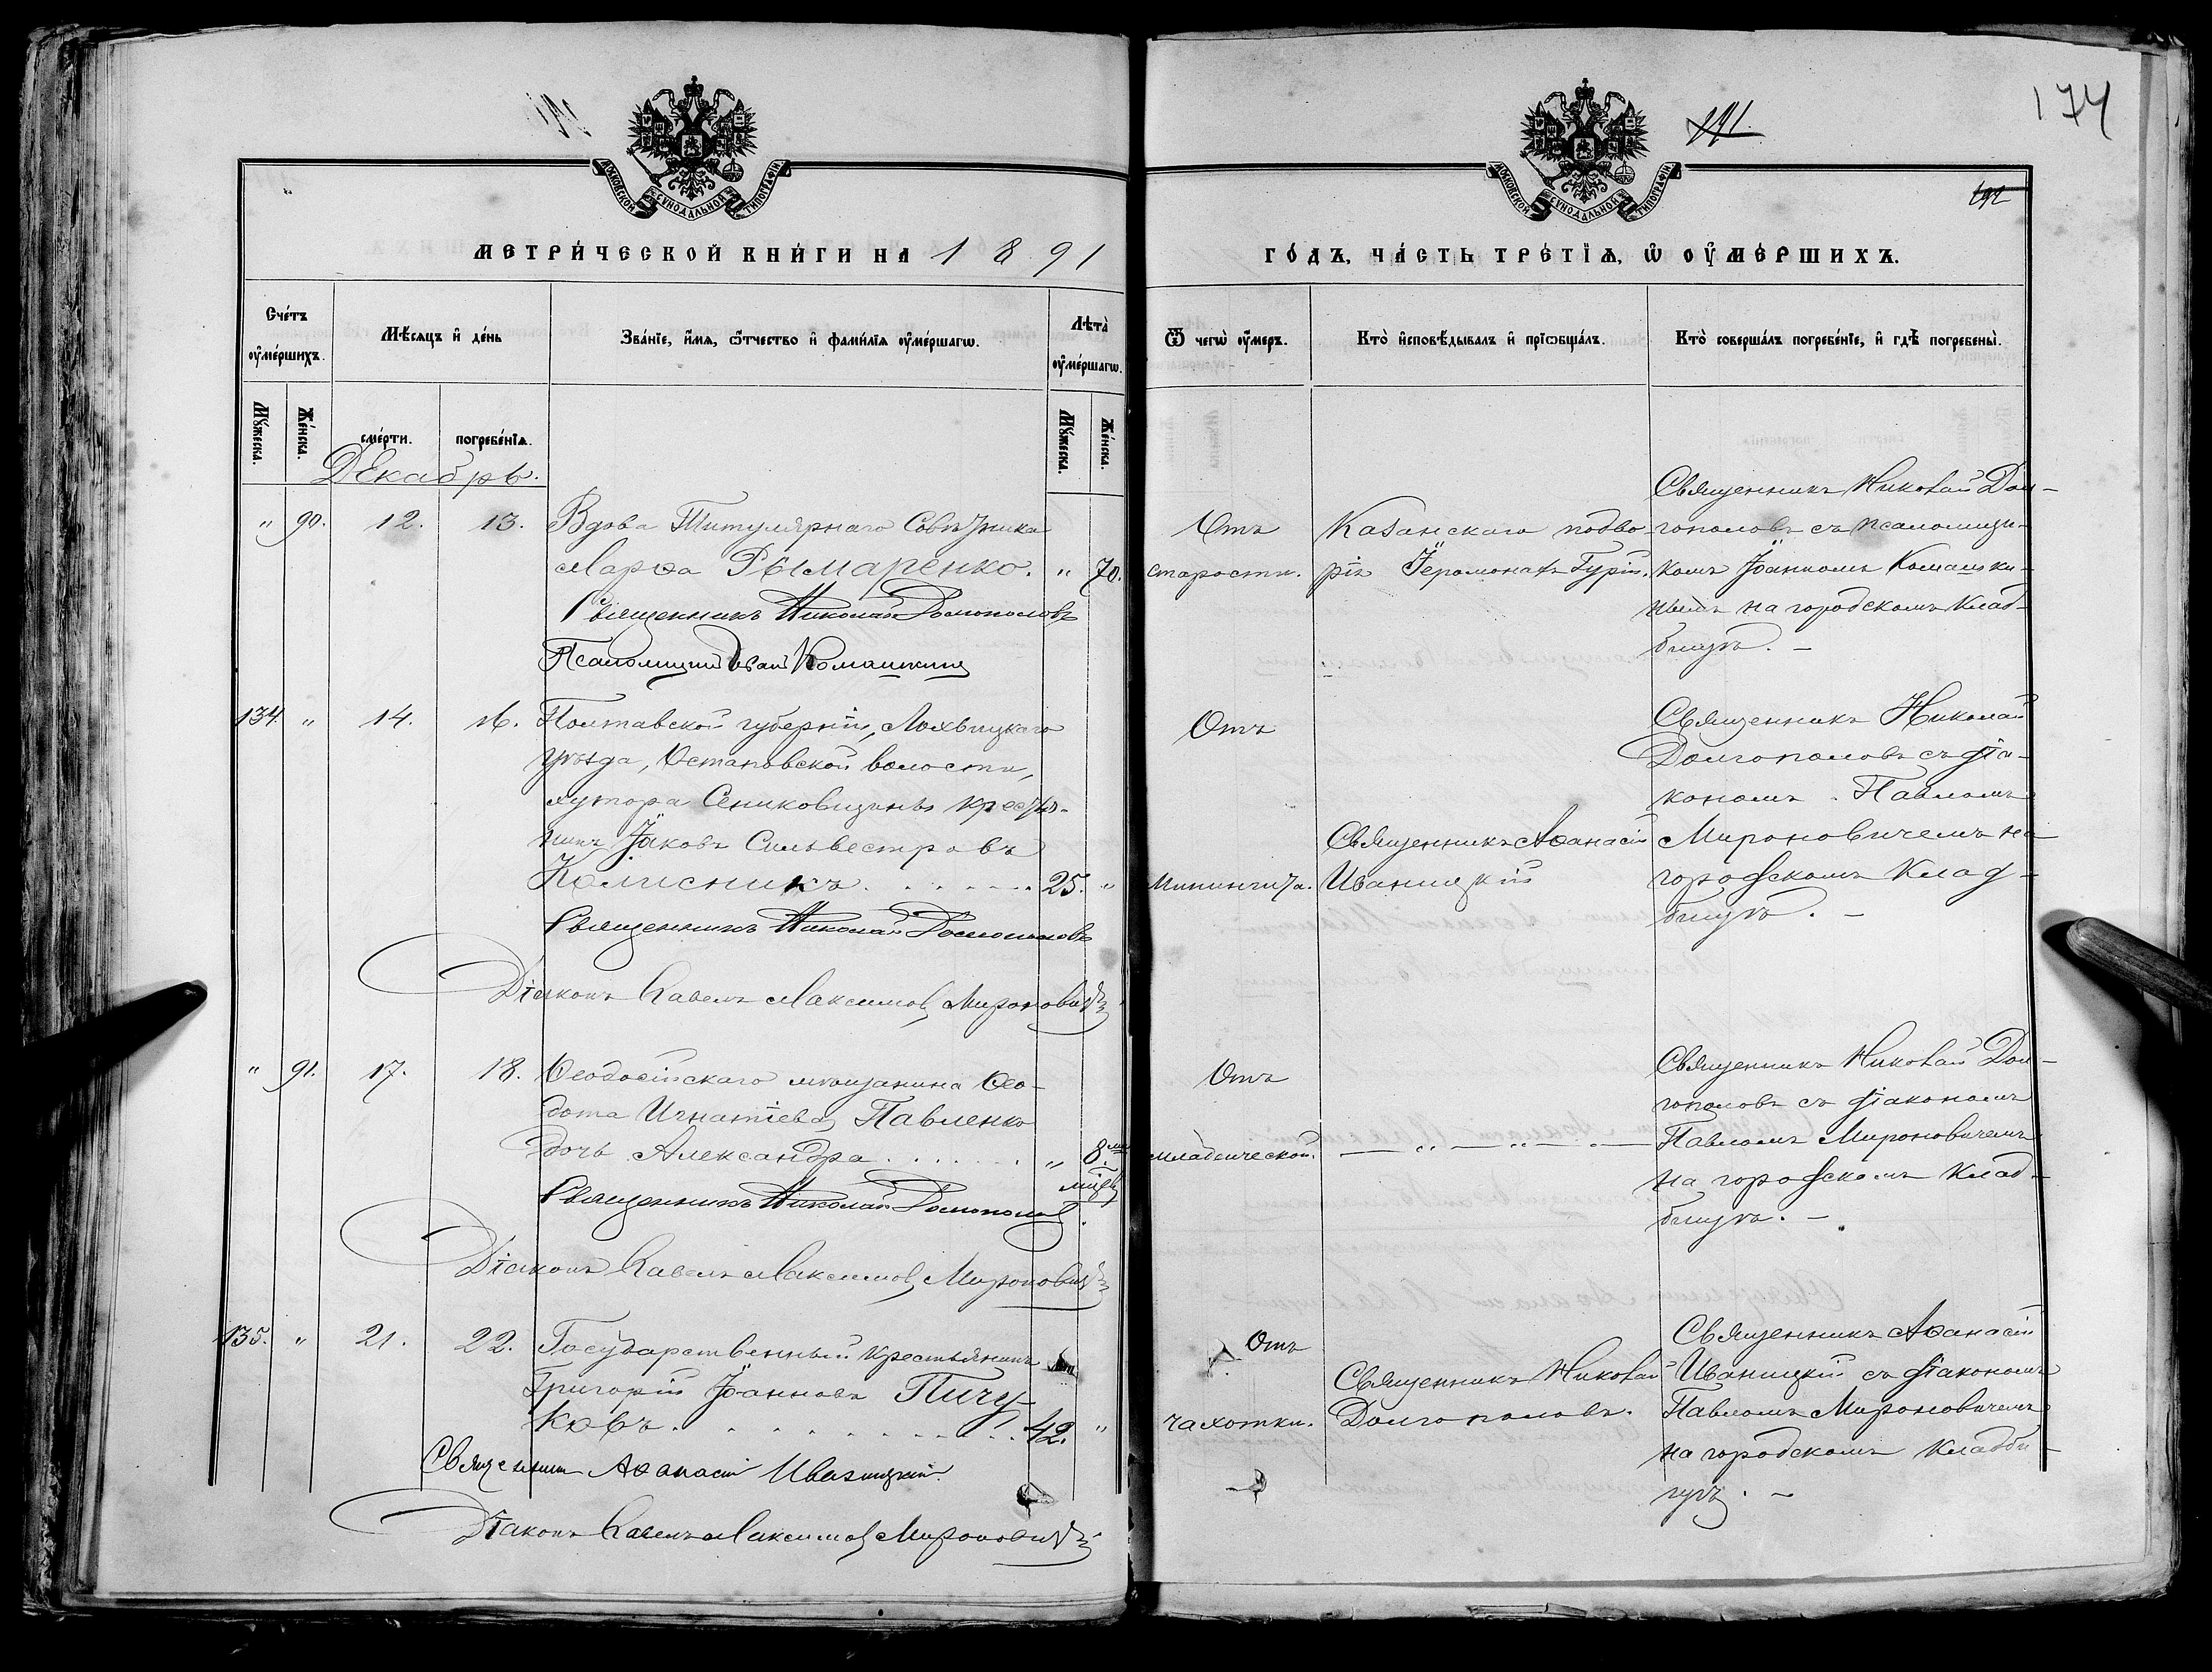 174
191.
192
МОСКОВСКОЙ СѴНОДАЛЬНОЙ ТИПОГРАФІИ
МОСКОВСКОЙ СѴНОДАЛЬНОЙ ТИПОГРАФІИ
МЕТРИ́ЧЕСКОЙ КНИ́ГИ НА 1891
ГО́ДЪ, ЧА́СТЬ ТРЕ́ТІѦ, Ѡ҆ ОУ҆МЕ́РШИХЪ.
Сче́тъ оу҆ме́ршихъ.
Мꙋ́жеска.
Же́нска.
Мѣ́сѧцъ и҆ де́нь
сме́рти.
погребе́нїѧ.
Зва́нїе, и҆́мѧ, ѻ҆́тчество и҆ фами́лїѧ оу҆ме́ршагѡ.
Лѣ́та оу҆ме́ршагѡ.
Мꙋ́жеска.
Же́нска.
Ѿ чегѡ̀ оу҆́меръ.
Кто̀ и҆сповѣ́дывалъ и҆ прїѡбща́лъ.
Кто̀ соверша́лъ погребе́нїе, и҆ гдѣ̀ погребены̀.
Декабрь.
" 90. 12. 13. Вдова Титулярнаго Совѣтника
Марѳа Рымаренко. " 70.
Священникъ Николай Долгополовъ
Псаломщикъ Иванъ Комашкинъ
Отъ
старости.
Казанскаго подво-
рія Іеромонахъ Гурій.
Священникъ Николай Дол-
гополовъ съ псаломщи-
комъ Іоанномъ Комашки-
нымъ на городскомъ клад-
бищѣ. –
134. " 14. 16. Полтавской губерніи, Лохвицкаго
уѣзда, Остаповской волости,
хутора Сениковщины крестья-
нинъ Іаковъ Сильвестровъ
Колисникъ. . . . . . 25. "
Священникъ Николай Долгополовъ
Діаконъ Павелъ Максимовъ Мироновичъ
Отъ
менингита.
Священникъ Аѳанасій
Иваницкій
Священникъ Николай
Долгополовъ съ діа-
кономъ Павломъ
Мироновичемъ на
городскомъ клад-
бищѣ. –
" 91. 17. 18. Ѳеодосійскаго мѣщанина Ѳео-
дота Игнатіева Павленко
дочь Александра. . . . . . " 8.ми
міцъ
Священникъ Николай Долгополовъ.
Діаконъ Павелъ Максимовъ Мироновичъ
Отъ
младенческой.
— " — " — " —
Священникъ Николай Дол-
гополовъ съ діакономъ
Павломъ Мироновичемъ
на городскомъ клад-
бищѣ. –
135. " 21. 22. Государственный крестьянинъ
Григорій Іоанновъ Пичу-
ковъ. . . . . . . . . . 42. "
Священникъ Аѳанасій Иваницкій.
Діаконъ Павелъ Максимовъ Мироновичъ
Отъ
чахотки.
Священникъ Николай
Долгополовъ.
Священникъ Аѳанасій
Иваницкій съ діакономъ
Павломъ Мироновичемъ
на городскомъ кладби-
щѣ. –